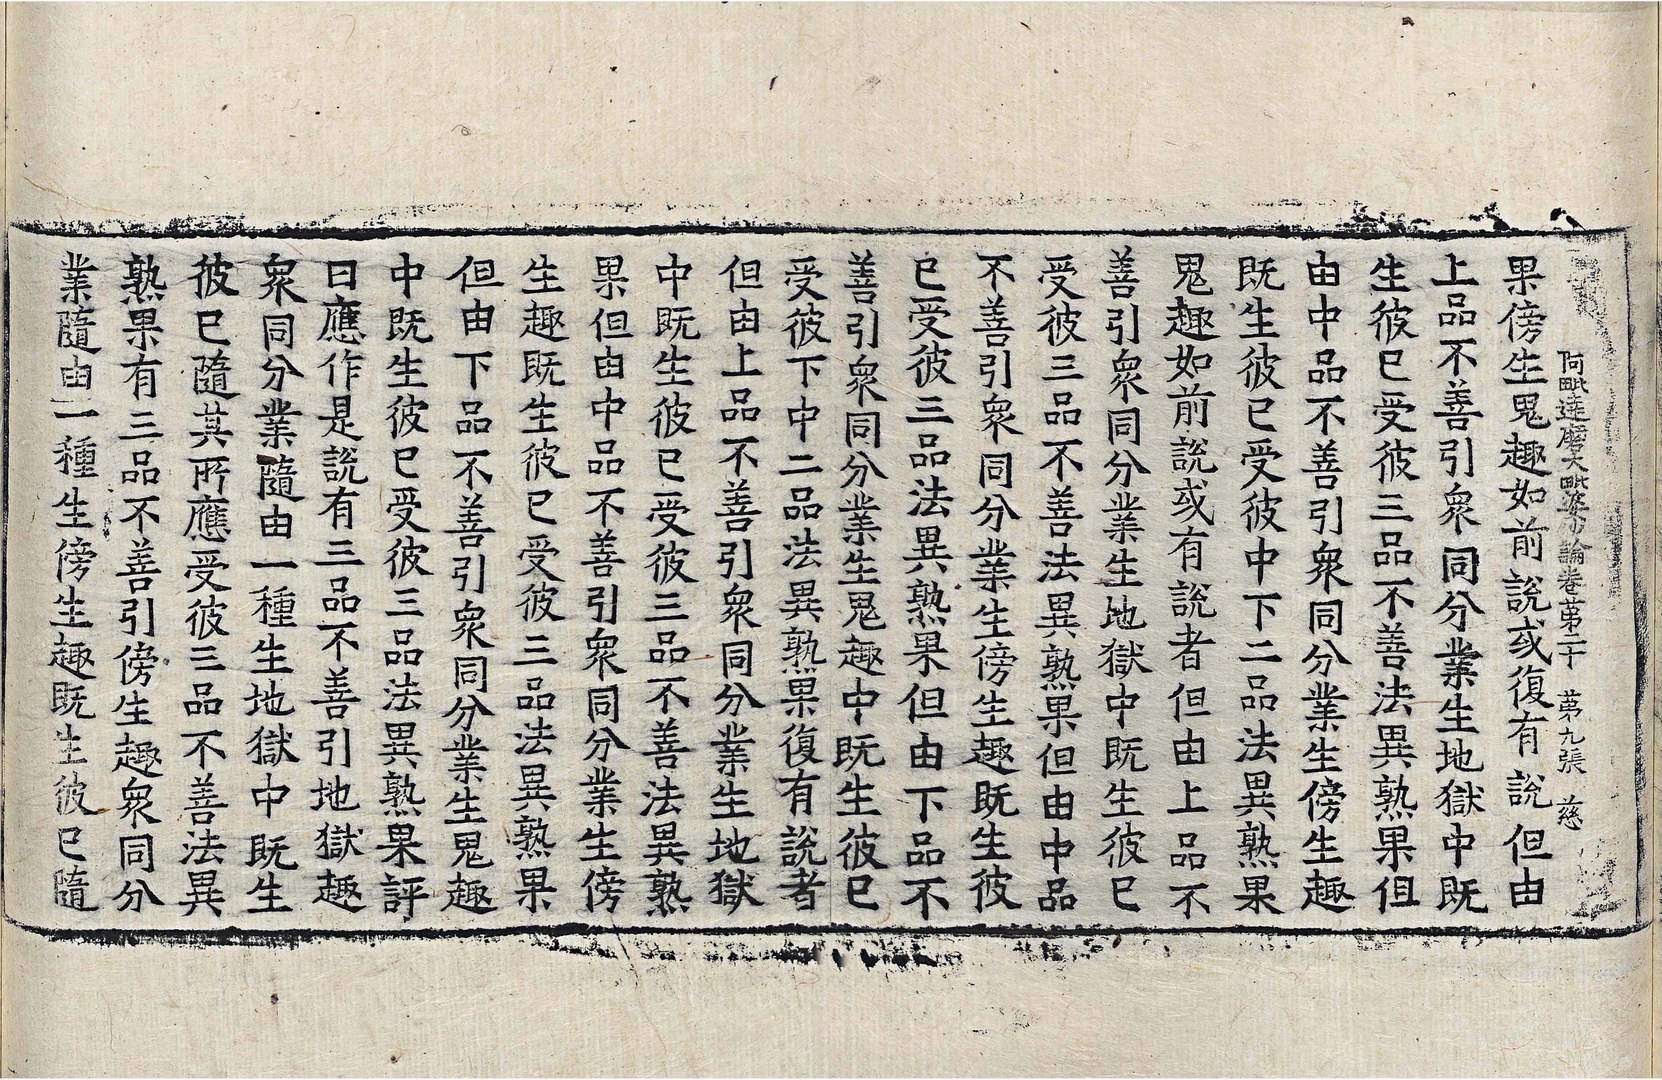 阿毗達磨大毗婆沙論卷第二十　第九張　慈
果傍生鬼趣如前說或復有說但由
上品不善引衆同分業生地獄中既
生彼已受彼三品不善法異熟果但
由中品不善引衆同分業生傍生趣
既生彼已受彼中下二品法異熟果
鬼趣如前說或有說者但由上品不
善引衆同分業生地獄中既生彼已
受彼三品不善法異熟果但由中品
不善引衆同分業生傍生趣既生彼
已受彼三品法異熟果但由下品不
善引衆同分業生鬼趣中既生彼已
受彼下中二品法異熟果復有說者
但由上品不善引衆同分業生地獄
中既生彼已受彼三品不善法異熟
果但由中品不善引衆同分業生傍
生趣既生彼已受彼三品法異熟果
但由下品不善引衆同分業生鬼趣
中既生彼已受彼三品法異熟果評
曰應作是說有三品不善引地獄趣
衆同分業隨由一種生地獄中既生
彼已隨其所應受彼三品不善法異
熟果有三品不善引傍生趣衆同分
業隨由一種生傍生趣既生彼已隨